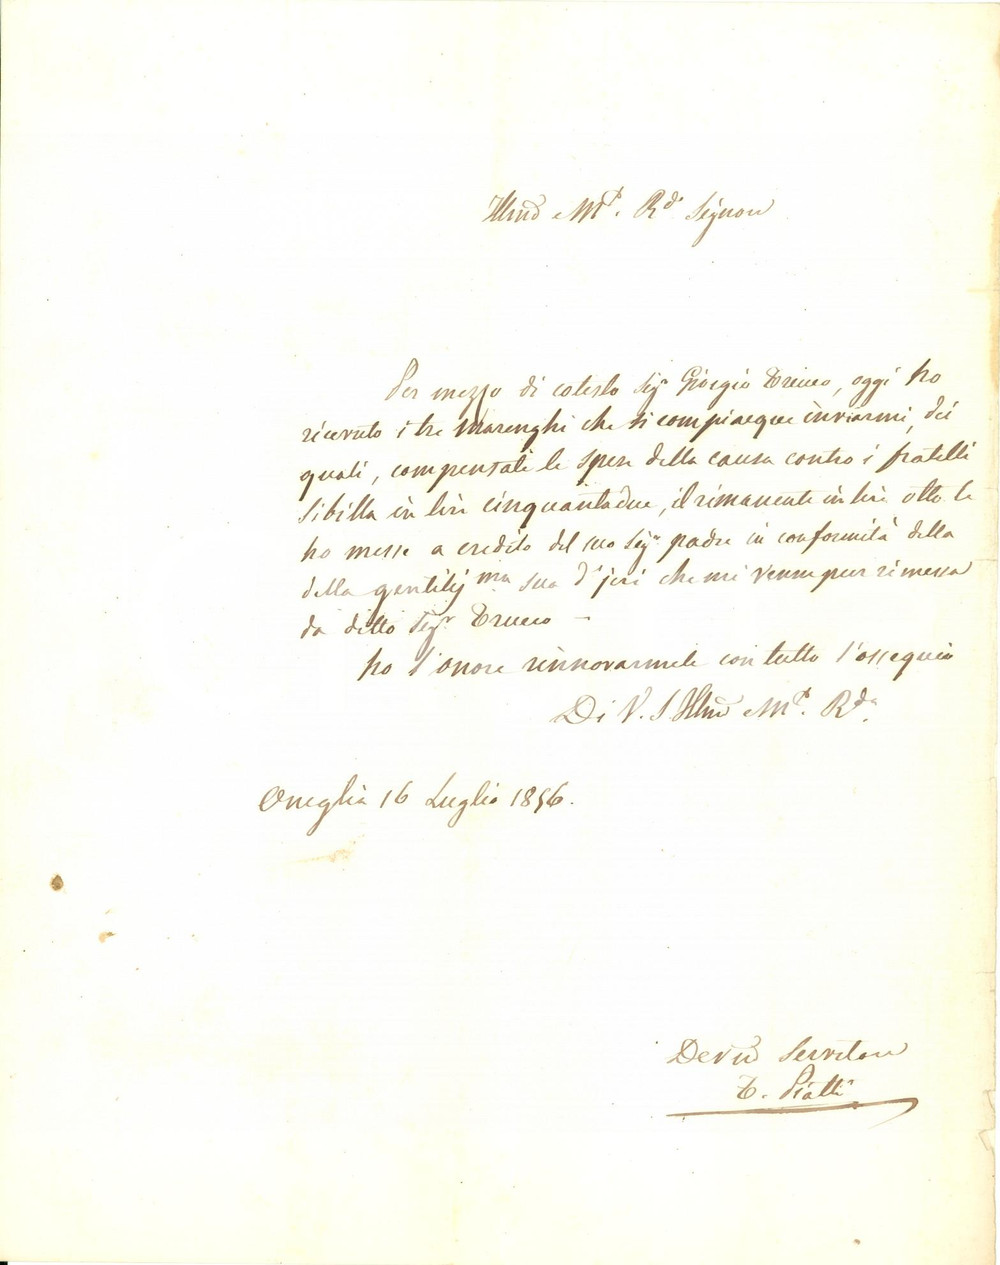 Illmo e Mto. Rdo Signore
Per mezzo di cotesto Sigr Giorgio Trucco, oggi ho
ricevuto i tre Marenghi che si compiacque inviarmi, dei
quali, compensate le spese della causa contro i fratelli
Sibilla in lire cinquantadue, il rimanente in lire otto le
ho messe a credito del suo Sigr padre in conformità della
della gentiliss.ma sua d'jeri che mi venne pur rimessa
da ditto Sigr Trucco –
Ho l'onore rinnovarmele con tutto l'ossequio
Di V. S. Illma e Mto. Rda.
Oneglia 16 Luglio 1856.
Devmo Servitore
Piatti